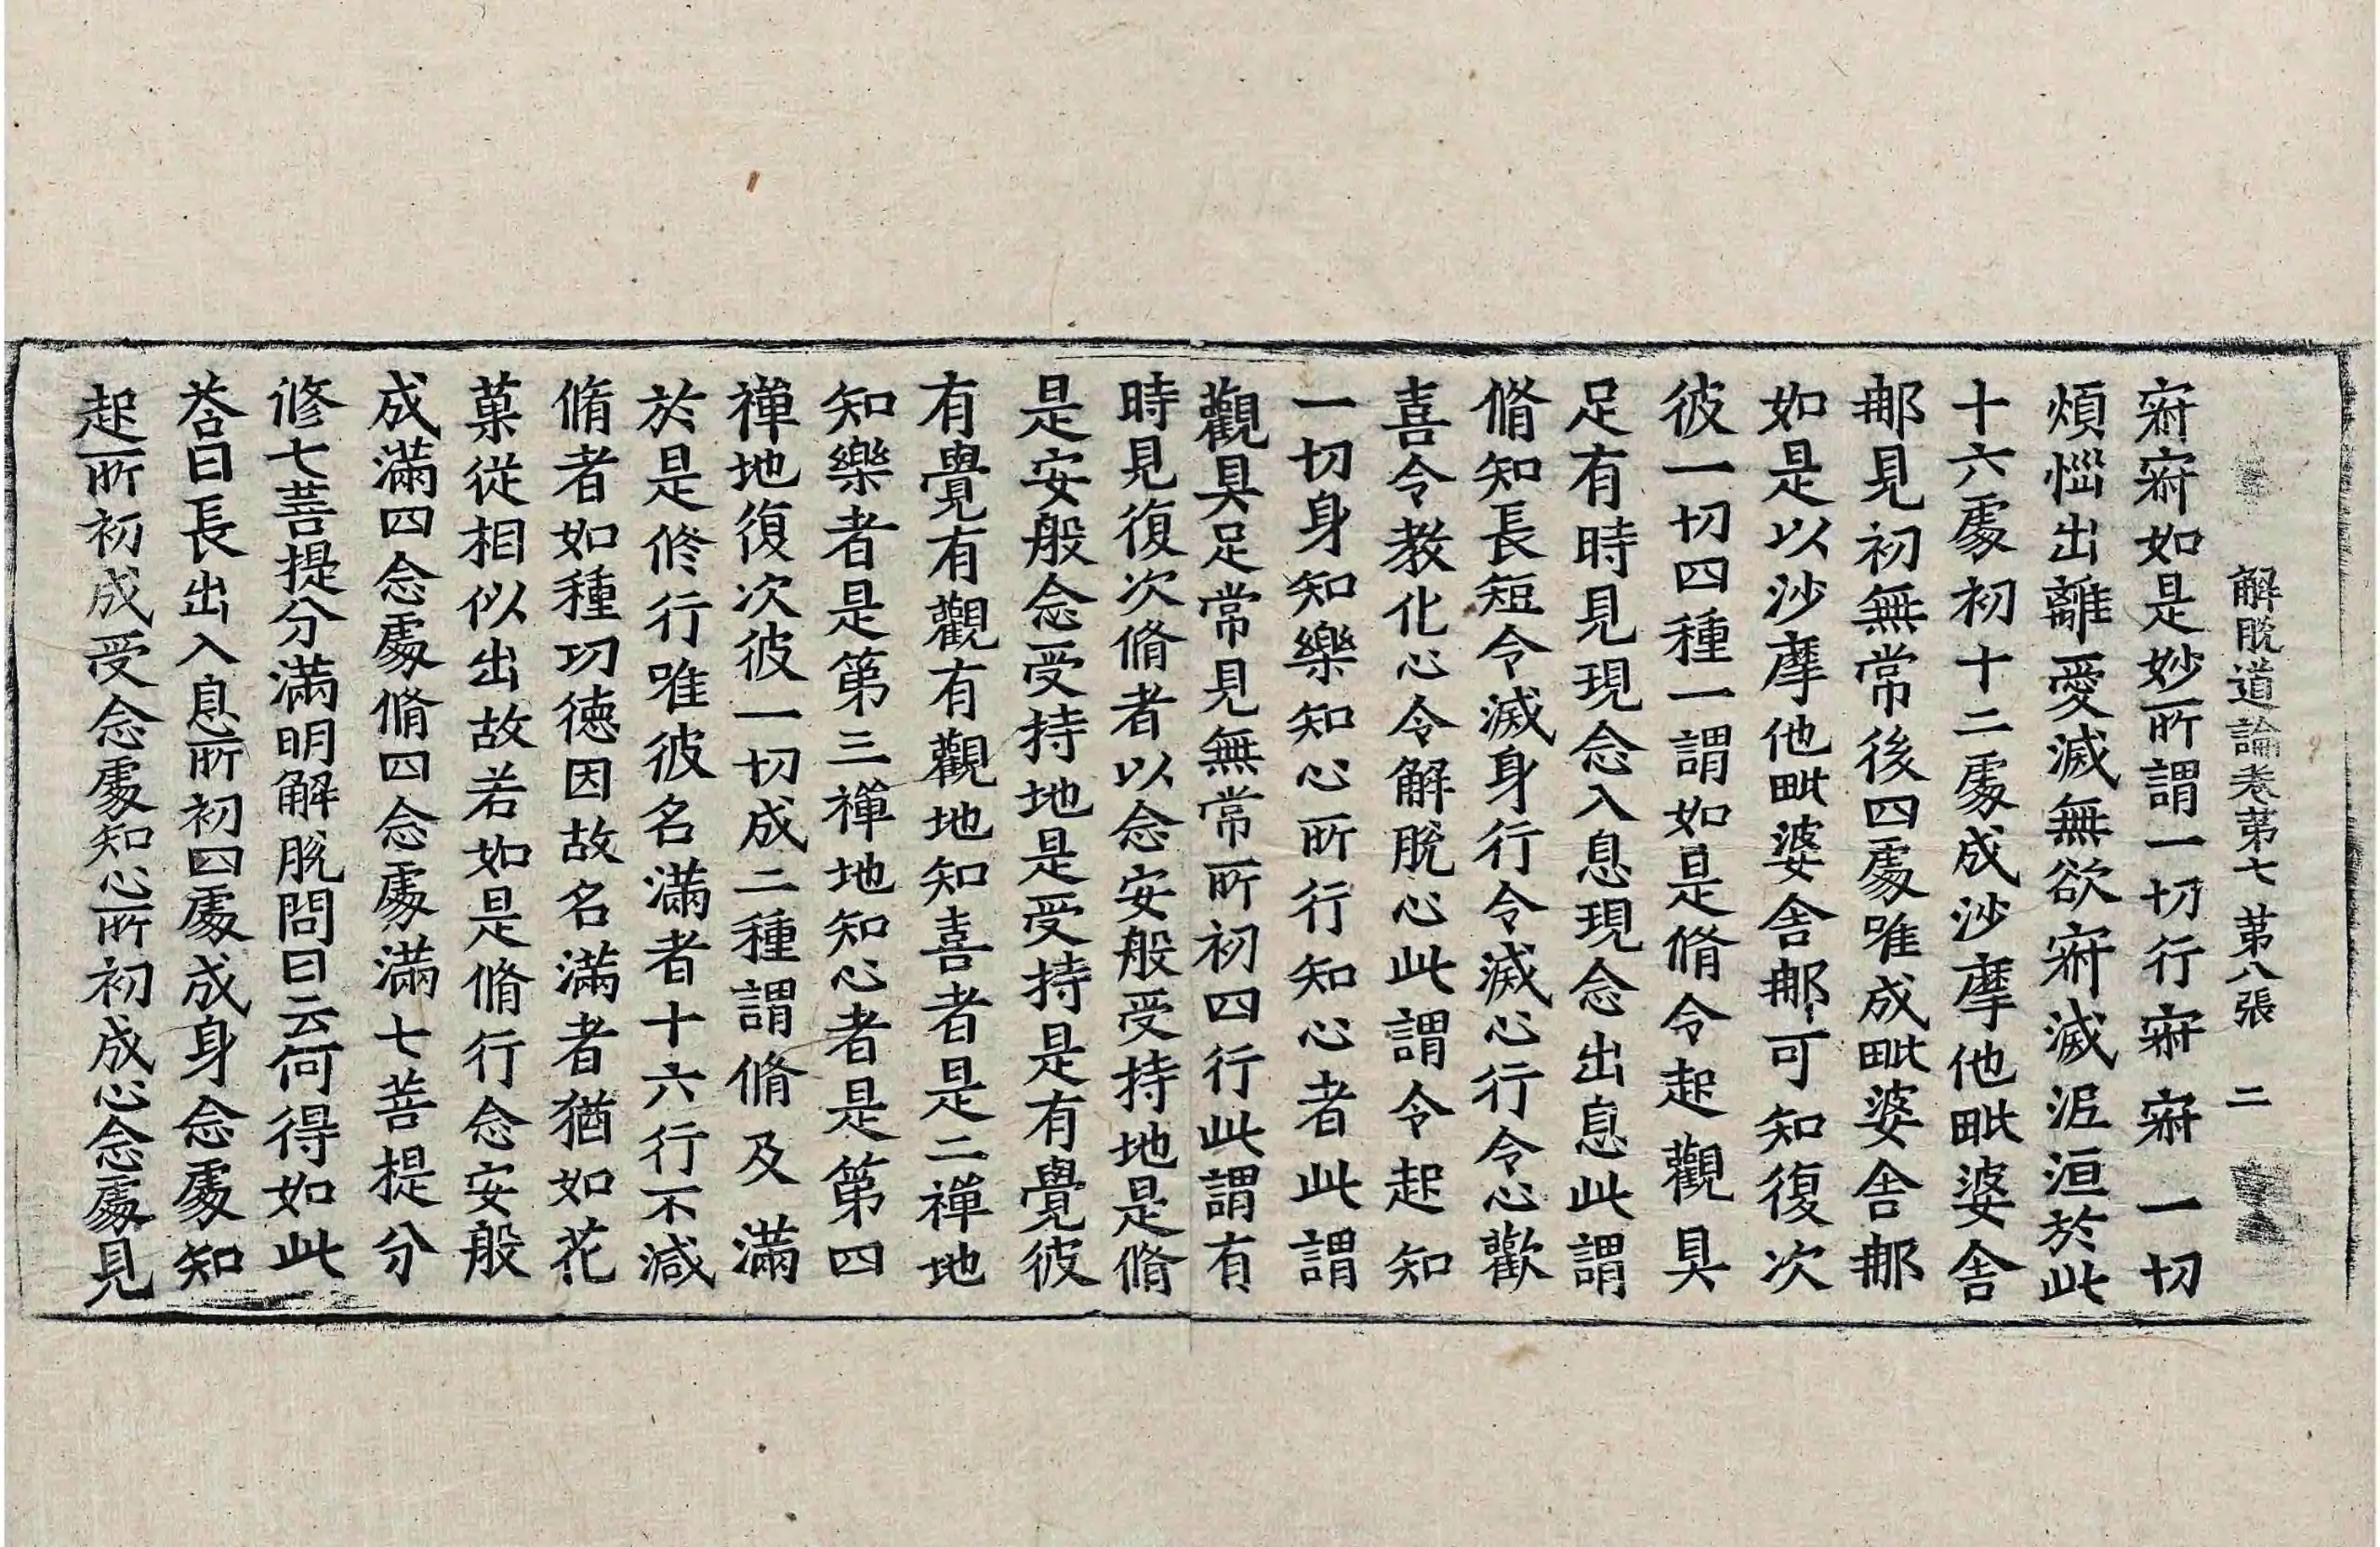 解脫道論卷第七 第八張 二
㝛㝛如是妙所謂一切行㝛㝛一切
煩惱出離愛滅無欲㝛滅泥洹於此
十六處初十二處成沙摩他毗婆舍
那見初無常後四處唯成毗婆舍那
如是以沙摩他毗婆舍那可知復次
彼一切四種一謂如是脩令起觀具
足有時見現念入息現念出息此謂
脩知長短令滅身行令滅心行令心歡
喜令教化心令解脫心此謂令起知
一切身知樂知心所行知心者此謂
觀具足常見無常所初四行此謂有
時見復次脩者以念安般受持地是脩
是安般念受持地是受持是有覺彼
有覺有觀有觀地知喜者是二禪地
知樂者是第三禪地知心者是第四
禪地復次彼一切成二種謂脩及滿
於是修行唯彼名滿者十六行不減
脩者如種功德因故名滿者猶如花
菓從相似出故若如是脩行念安般
成滿四念處脩四念處滿七菩提分
修七菩提分滿明解脫問曰云何得如此
荅曰長出入息所初四處成身念處知
起所初成受念處知心所初成心念處見